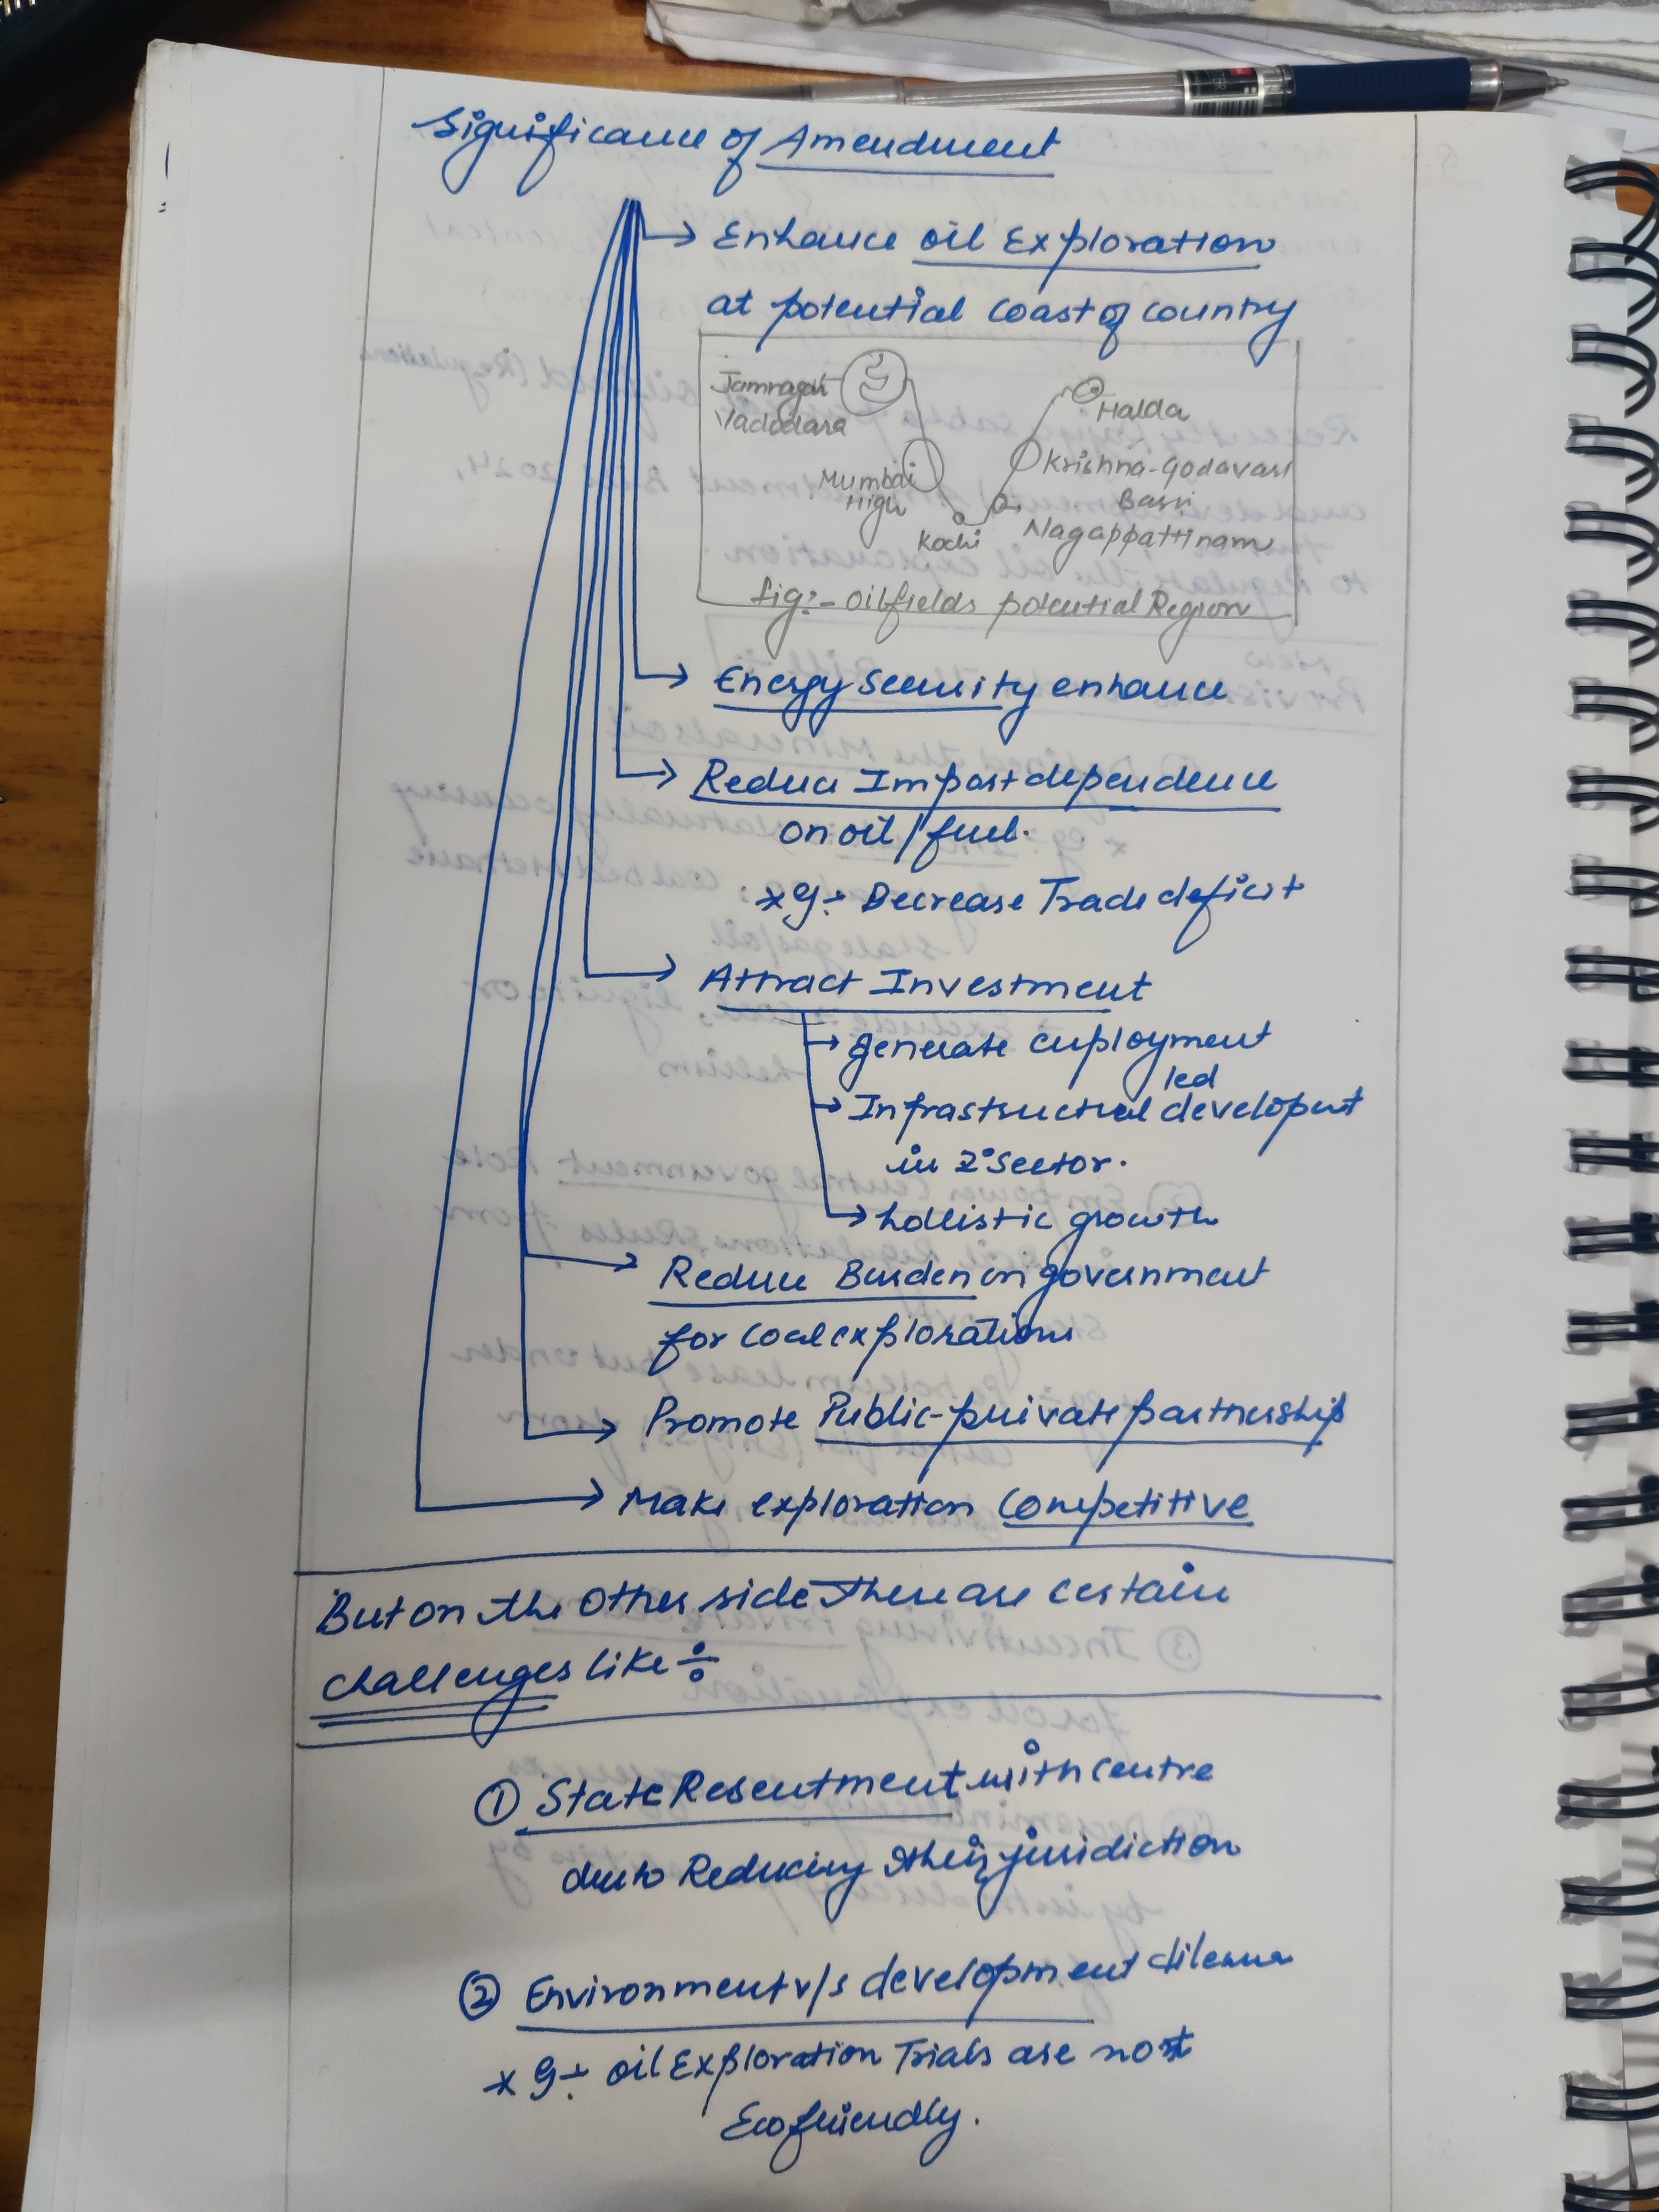 Significance of Amendment
→ Enhance oil Exploration
at potential coast of country
Jamnagar
Vadodara
Halda
Krishna-Godavari
Basin
Mumbai
High
Kochi
Nagappattinam
fig:- oilfields potential Region
→ Energy Security enhance
→ Reduce Import dependence
on oil/fuel.
xg:- Decrease Trade deficit
→ Attract Investment
→ generate employment
led
→ Infrastructural developmt
in 2° sector.
→ hollistic growth
→ Reduce Burden on government
for coal explorations
→ Promote Public-private partnership
→ Make exploration Competitive
But on the other side there are certain
challenges like ÷
① State Resentment with centre
due to Reducing their jurisdiction
② Environment v/s development dilema
xg:- oil Exploration Trials are not
Ecofriendly.